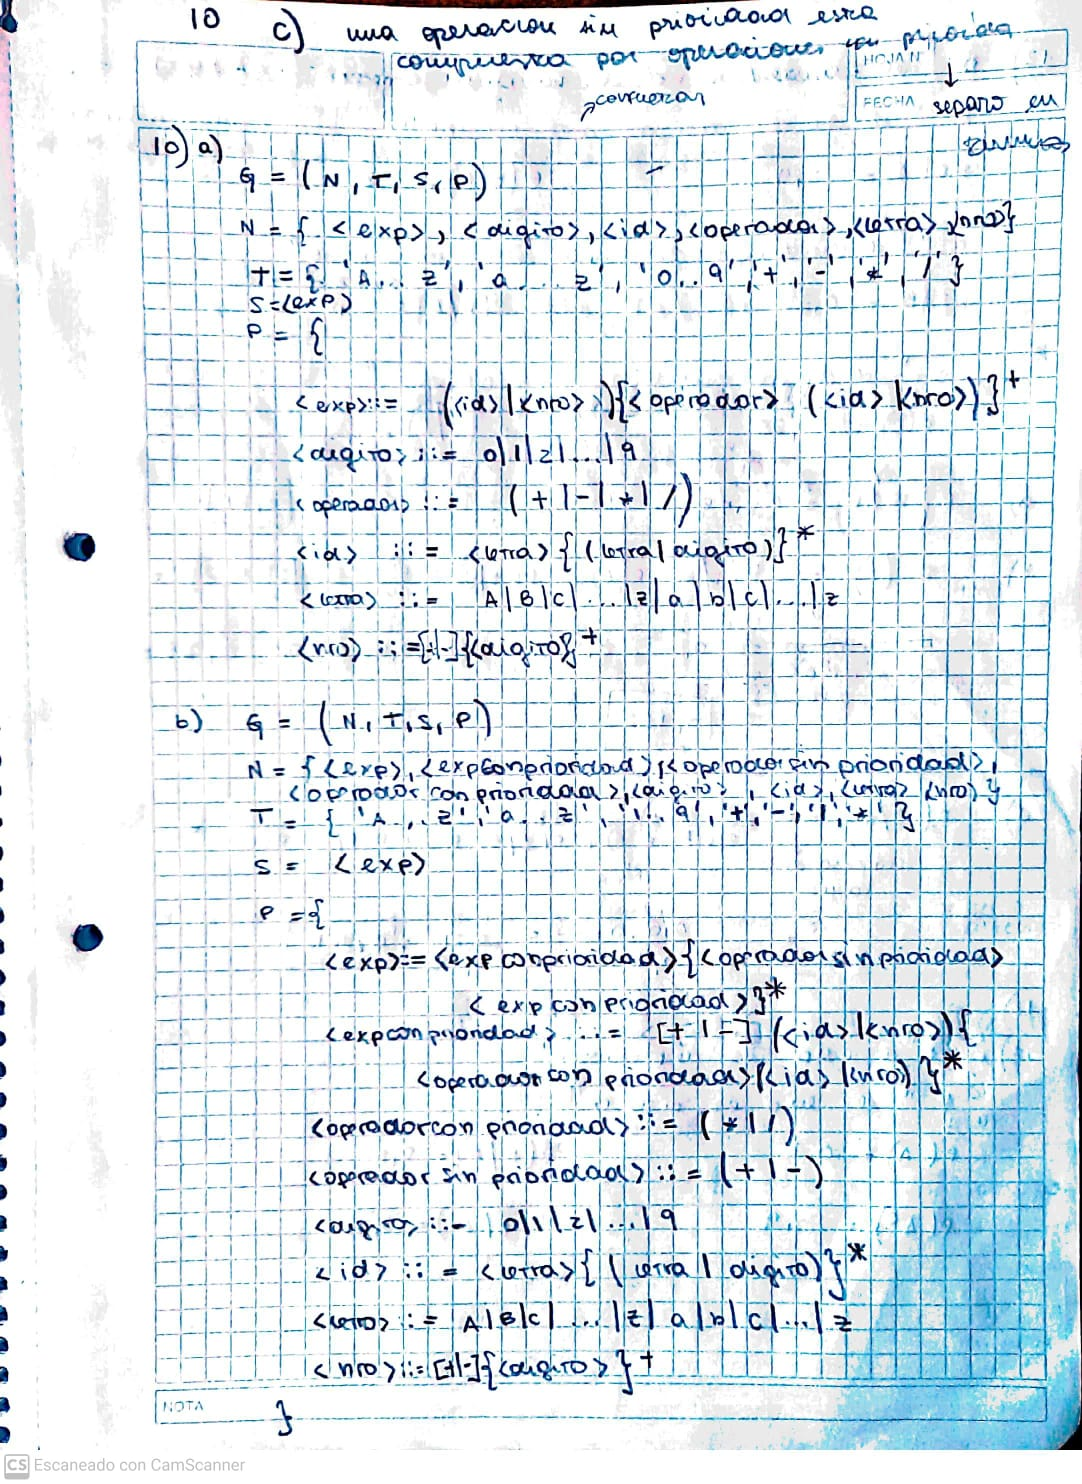 10 c) una operacion sin prioridad esta
compuesta por operaciones con prioridad
HOJA Nº
↓
comenzar
FECHA separo en
10) a)
G = (N, T, S, P)
N = { <exp>, <digito>, <id>, <operador>, <letra> <nro>}
T = { 'A...z', 'a...z', '0..9', '+', '-', '*', '/' }
S = <exp>
P = {
<exp>::= (<id>|<nro>){<operador> (<id>|<nro>)}+
<digito> ::= 0|1|2|...|9
<operador> ::= (+|-|*|/)
<id> ::= <letra>{(letra|digito)}*
<letra> ::= A|B|C|...|z|a|b|c|...|z
<nro> ::=[+|-]{<digito>}+
b) G = (N, T, S, P)
N = {<exp>, <expconprioridad>, <operador sin prioridad>,
<operador con prioridad>, <digito>, <id>, <letra> <nro> }
T = { 'A...z', 'a..z', '1..9', '+', '-', '/', '*' }
S = <exp>
P = {
<exp>::= <exp conprioridad>{<operador sin prioridad>
<exp con prioridad>}*
<expcon prioridad> ::= [+|-] (<id>|<nro>){
<operador con prioridad>(<id>|<nro>) }*
<operadorcon prioridad> ::= (*|/)
<operador sin prioridad> ::= (+|-)
<digito> ::= 0|1|2|...|9
<id> ::= <letra>{(letra|digito)}*
<letra> ::= A|B|C|...|z|a|b|c|...|z
<nro>::=[+|-]{<digito>}+
NOTA }
CS Escaneado con CamScanner